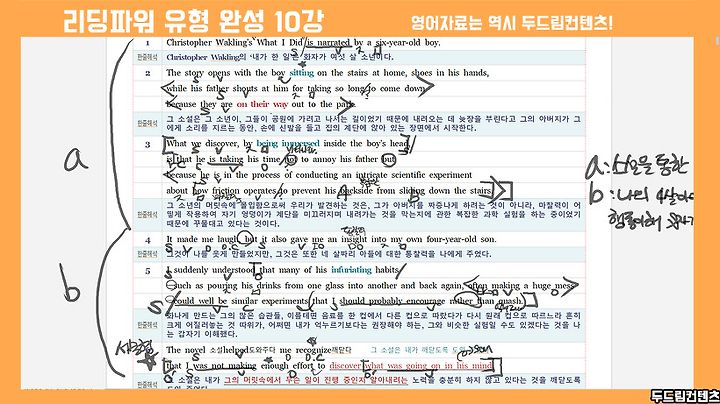 리딩파워 유형 완성 10강
영어자료는 역시 두드림컨텐츠!
1 Christopher Wakling's What I Did is narrated by a six-year-old boy.
한줄해석 Christopher Wakling의 '내가 한 일'은 화자가 여섯 살 소년이다.
2 The story opens with the boy sitting on the stairs at home, shoes in his hands,
while his father shouts at him for taking so long to come down
because they are on their way out to the park.
한줄해석 그 소설은 그 소년이, 그들이 공원에 가려고 나서는 길이었기 때문에 내려오는 데 늦장을 부린다고 그의 아버지가 그
에게 소리를 지르는 동안, 손에 신발을 들고 집의 계단에 앉아 있는 장면에서 시작한다.
3 What we discover, by being immersed inside the boy's head,
is that he is taking his time not to annoy his father but
because he is in the process of conducting an intricate scientific experiment
about how friction operates to prevent his backside from sliding down the stairs.
한줄해석 그 소년의 머릿속에서 몰입함으로써 우리가 발견하는 것은, 그가 아버지를 짜증나게 하려는 것이 아니라, 마찰력이 어
떻게 작용하여 자기 엉덩이가 계단을 미끄러지며 내려가는 것을 막는지에 관한 복잡한 과학 실험을 하는 중이었기
때문에 꾸물대고 있다는 것이다.
a
a: 소설을 통한
b: 나의 4살아이
4 It made me laugh, but it also gave me an insight into my own four-year-old son.
한줄해석 그것이 나를 웃게 만들었지만, 그것은 또한 네 살짜리 아들에 대한 통찰력을 나에게 주었다.
5 I suddenly understood that many of his infuriating habits,
such as pouring his drinks from one glass into another and back again, often making a huge mess,
could well be similar experiments that I should probably encourage rather than quash.
b
한줄해석 화나게 만드는 그의 많은 습관들, 이를테면 음료를 한 컵에서 다른 컵으로 따랐다가 다시 원래 컵으로 따르느라 흔히
크게 어질러놓는 것 따위가, 어쩌면 내가 억누르기보다는 권장해야 하는, 그와 비슷한 실험일 수도 있겠다는 것을 나
는 갑자기 이해했다.
The novel 소설 helped도와주다 me recognize깨닫다 그 소설은 내가 깨닫도록 도와
that I was not making enough effort to discover what was going on in his mind.
한줄해석 그 소설은 내가 그의 머릿속에서 무슨 일이 진행 중인지 알아내려는 노력을 충분히 하지 않고 있다는 것을 깨닫도록
두드림컨텐츠